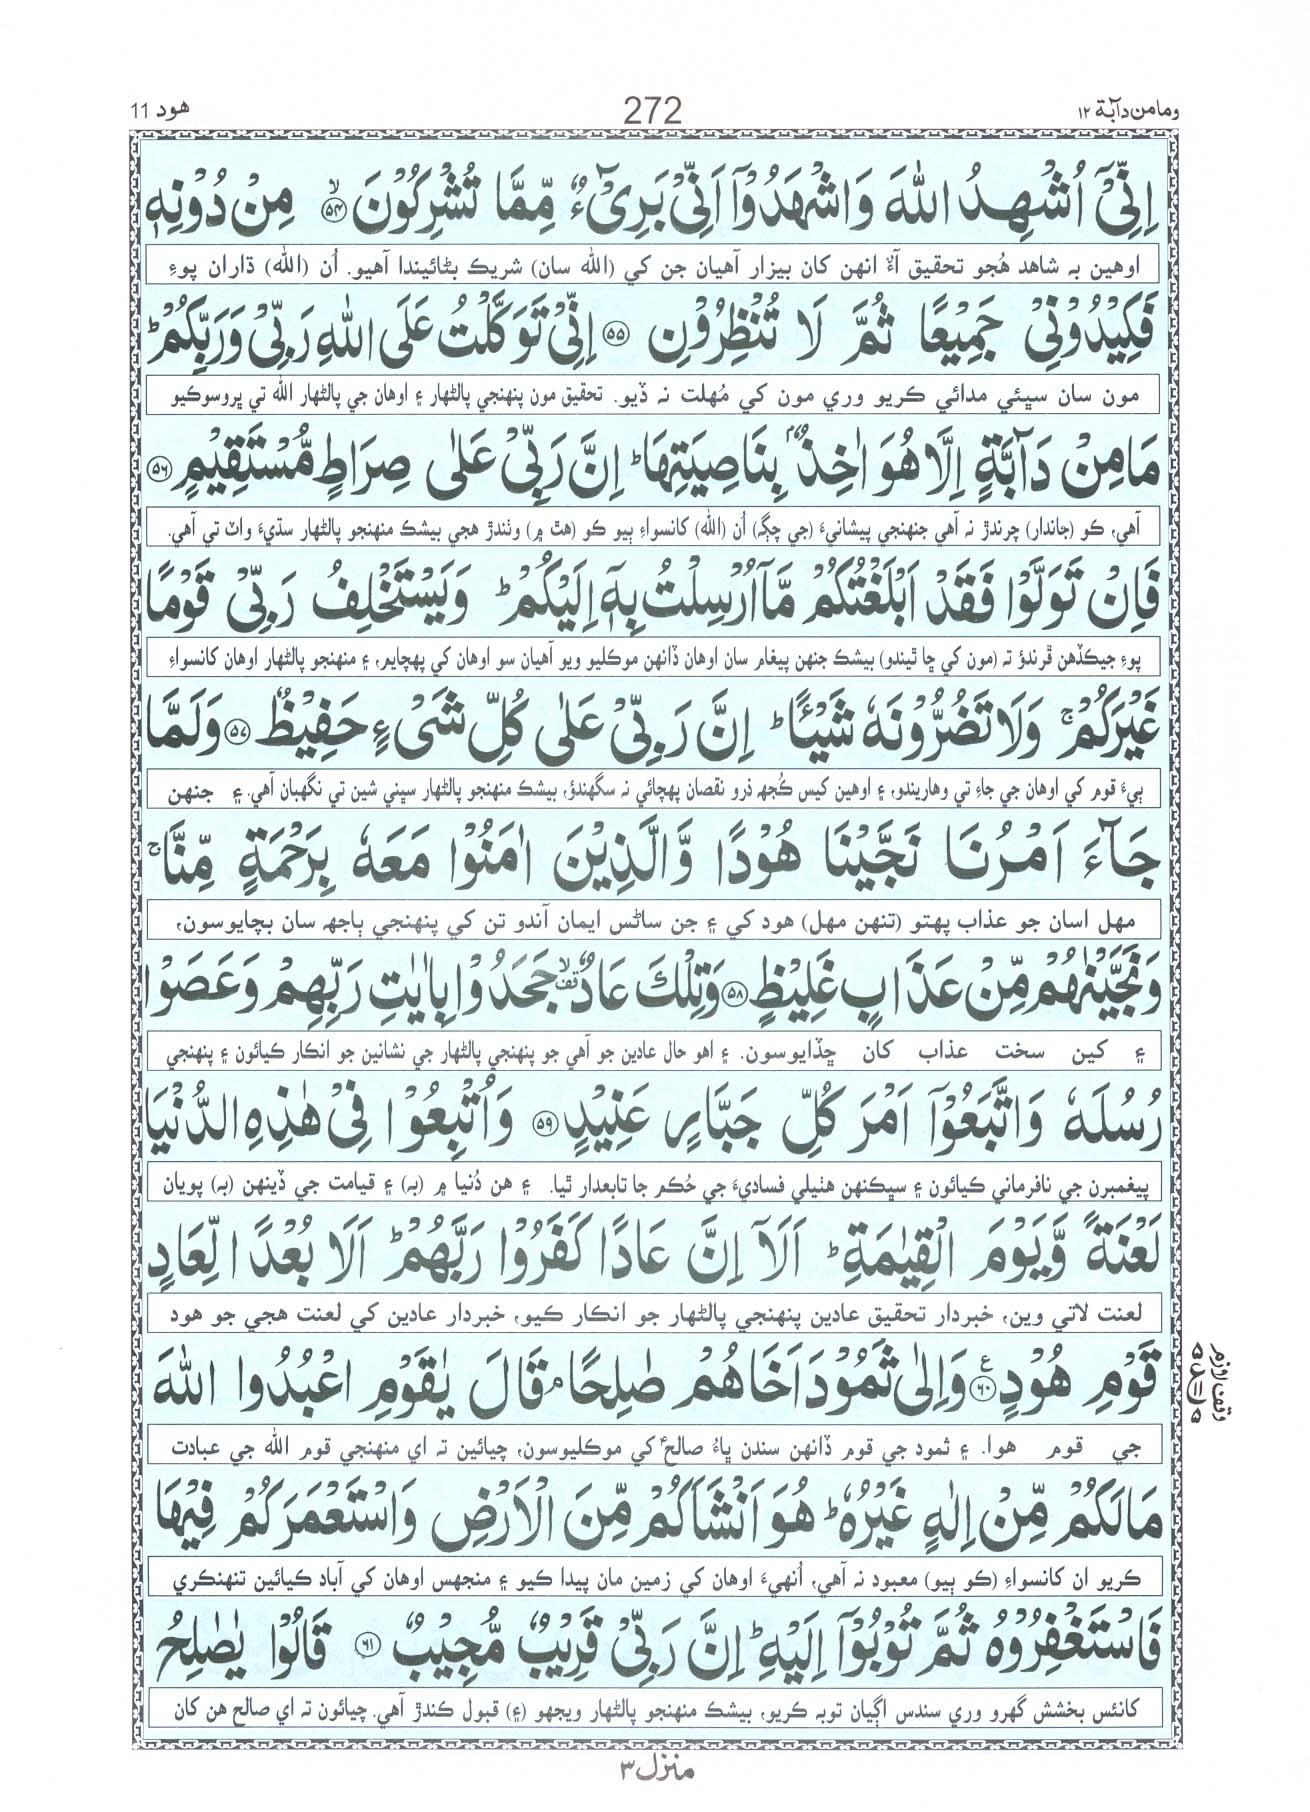 ومامن دآبة ١٢
272
هود 11
اِنِّیْۤ اُشْهِدُ اللّٰهَ وَاشْهَدُوْۤا اَنِّیْ بَرِیْٓءٌ مِّمَّا تُشْرِكُوْنَ ۙ﴿۵۴﴾ مِنْ دُوْنِهٖ
اوهين به شاهد هُجو تحقيق آءٌ انهن کان بيزار آهيان جن کي (الله سان) شريڪ بڻائيندا آهيو. اُن (الله) ڌاران پوءِ
فَكِیْدُوْنِیْ جَمِیْعًا ثُمَّ لَا تُنْظِرُوْنِ ﴿۵۵﴾ اِنِّیْ تَوَكَّلْتُ عَلَی اللّٰهِ رَبِّیْ وَرَبِّكُمْ ؕ
مون سان سڀئي مدائي ڪريو وري مون کي مُهلت نه ڏيو. تحقيق مون پنهنجي پالڻهار ۽ اوهان جي پالڻهار الله تي ڀروسوڪيو
مَا مِنْ دَآبَّةٍ اِلَّا هُوَ اٰخِذٌۢ بِنَاصِیَتِهَا ؕ اِنَّ رَبِّیْ عَلٰی صِرَاطٍ مُّسْتَقِیْمٍ ﴿۵۶﴾
آهي، ڪو (جاندار) چرندڙ نه آهي جنهنجي پيشانيءَ (جي چڳ) اُن (الله) کانسواءِ ٻيو ڪو (هٿ ۾) وٺندڙ هجي بيشڪ منهنجو پالڻهار سڌيءَ واٽ تي آهي.
فَاِنْ تَوَلَّوْا فَقَدْ اَبْلَغْتُكُمْ مَّاۤ اُرْسِلْتُ بِهٖۤ اِلَیْكُمْ ؕ وَیَسْتَخْلِفُ رَبِّیْ قَوْمًا
پوءِ جيڪڏهن ڦرندؤ ته (مون کي ڇا ٿيندو) بيشڪ جنهن پيغام سان اوهان ڏانهن موڪليو ويو آهيان سو اوهان کي پهچايم، ۽ منهنجو پالڻهار اوهان کانسواءِ
غَیْرَكُمْ ۚ وَلَا تَضُرُّوْنَهٗ شَیْـًٔا ؕ اِنَّ رَبِّیْ عَلٰی كُلِّ شَیْءٍ حَفِیْظٌ ﴿۵۷﴾ وَلَمَّا
ٻيءَ قوم کي اوهان جي جاءِ تي وهاريندو، ۽ اوهين کيس ڪُجهه ذرو نقصان پهچائي نه سگهندؤ، بيشڪ منهنجو پالڻهار سڀني شين تي نگهبان آهي. ۽ جنهن
جَآءَ اَمْرُنَا نَجَّیْنَا هُوْدًا وَّالَّذِیْنَ اٰمَنُوْا مَعَهٗ بِرَحْمَةٍ مِّنَّا ۚ
مهل اسان جو عذاب پهتو (تنهن مهل) هود کي ۽ جن ساڻس ايمان آندو تن کي پنهنجي ٻاجهه سان بچايوسون،
وَنَجَّیْنٰهُمْ مِّنْ عَذَابٍ غَلِیْظٍ ﴿۵۸﴾ وَتِلْكَ عَادٌ ۟ۙ جَحَدُوْا بِاٰیٰتِ رَبِّهِمْ وَعَصَوْا
۽ کين سخت عذاب کان ڇڏايوسون. ۽ اهو حال عادين جو آهي جو پنهنجي پالڻهار جي نشانين جو انڪار ڪيائون ۽ پنهنجي
رُسُلَهٗ وَاتَّبَعُوْۤا اَمْرَ كُلِّ جَبَّارٍ عَنِیْدٍ ﴿۵۹﴾ وَاُتْبِعُوْا فِیْ هٰذِهِ الدُّنْیَا
پيغمبرن جي نافرماني ڪيائون ۽ سڀڪنهن هٺيلي فساديءَ جي حُڪم جا تابعدار ٿيا. ۽ هن دُنيا ۾ (به) ۽ قيامت جي ڏينهن (به) پويان
لَعْنَةً وَّیَوْمَ الْقِیٰمَةِ ؕ اَلَاۤ اِنَّ عَادًا كَفَرُوْا رَبَّهُمْ ؕ اَلَا بُعْدًا لِّعَادٍ
لعنت لاتي وين، خبردار تحقيق عادين پنهنجي پالڻهار جو انڪار ڪيو، خبردار عادين کي لعنت هجي جو هود
قَوْمِ هُوْدٍ ﴿۶۰﴾ع وَاِلٰی ثَمُوْدَ اَخَاهُمْ صٰلِحًا ۘ قَالَ یٰقَوْمِ اعْبُدُوا اللّٰهَ
جي قوم هوا. ۽ ثمود جي قوم ڏانهن سندن ڀاءُ صالحؑ کي موڪليوسون، چيائين ته اي منهنجي قوم الله جي عبادت
مَا لَكُمْ مِّنْ اِلٰهٍ غَیْرُهٗ ؕ هُوَ اَنْشَاَكُمْ مِّنَ الْاَرْضِ وَاسْتَعْمَرَكُمْ فِیْهَا
ڪريو ان کانسواءِ (ڪو ٻيو) معبود نه آهي، اُنهيءَ اوهان کي زمين مان پيدا ڪيو ۽ منجهس اوهان کي آباد ڪيائين تنهنڪري
فَاسْتَغْفِرُوْهُ ثُمَّ تُوْبُوْۤا اِلَیْهِ ؕ اِنَّ رَبِّیْ قَرِیْبٌ مُّجِیْبٌ ﴿۶۱﴾ قَالُوْا یٰصٰلِحُ
کانئس بخشش گهرو وري سندس اڳيان توبه ڪريو، بيشڪ منهنجو پالڻهار ويجهو (۽) قبول ڪندڙ آهي. چيائون ته اي صالح هن کان
وقف لازم
منزل ٣